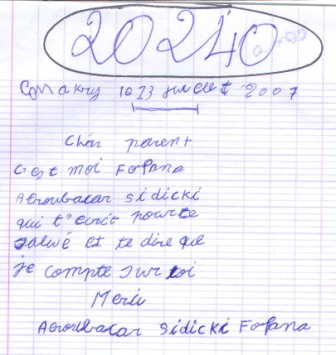 20240
Conakry le 23 juillet 2007
Cher parent
C'est moi Fofana
Aboubacar Sidicki
qui t'écrit pour te
salué et te dire que
je compte sur toi
Merci
Aboubacar Sidicki Fofana